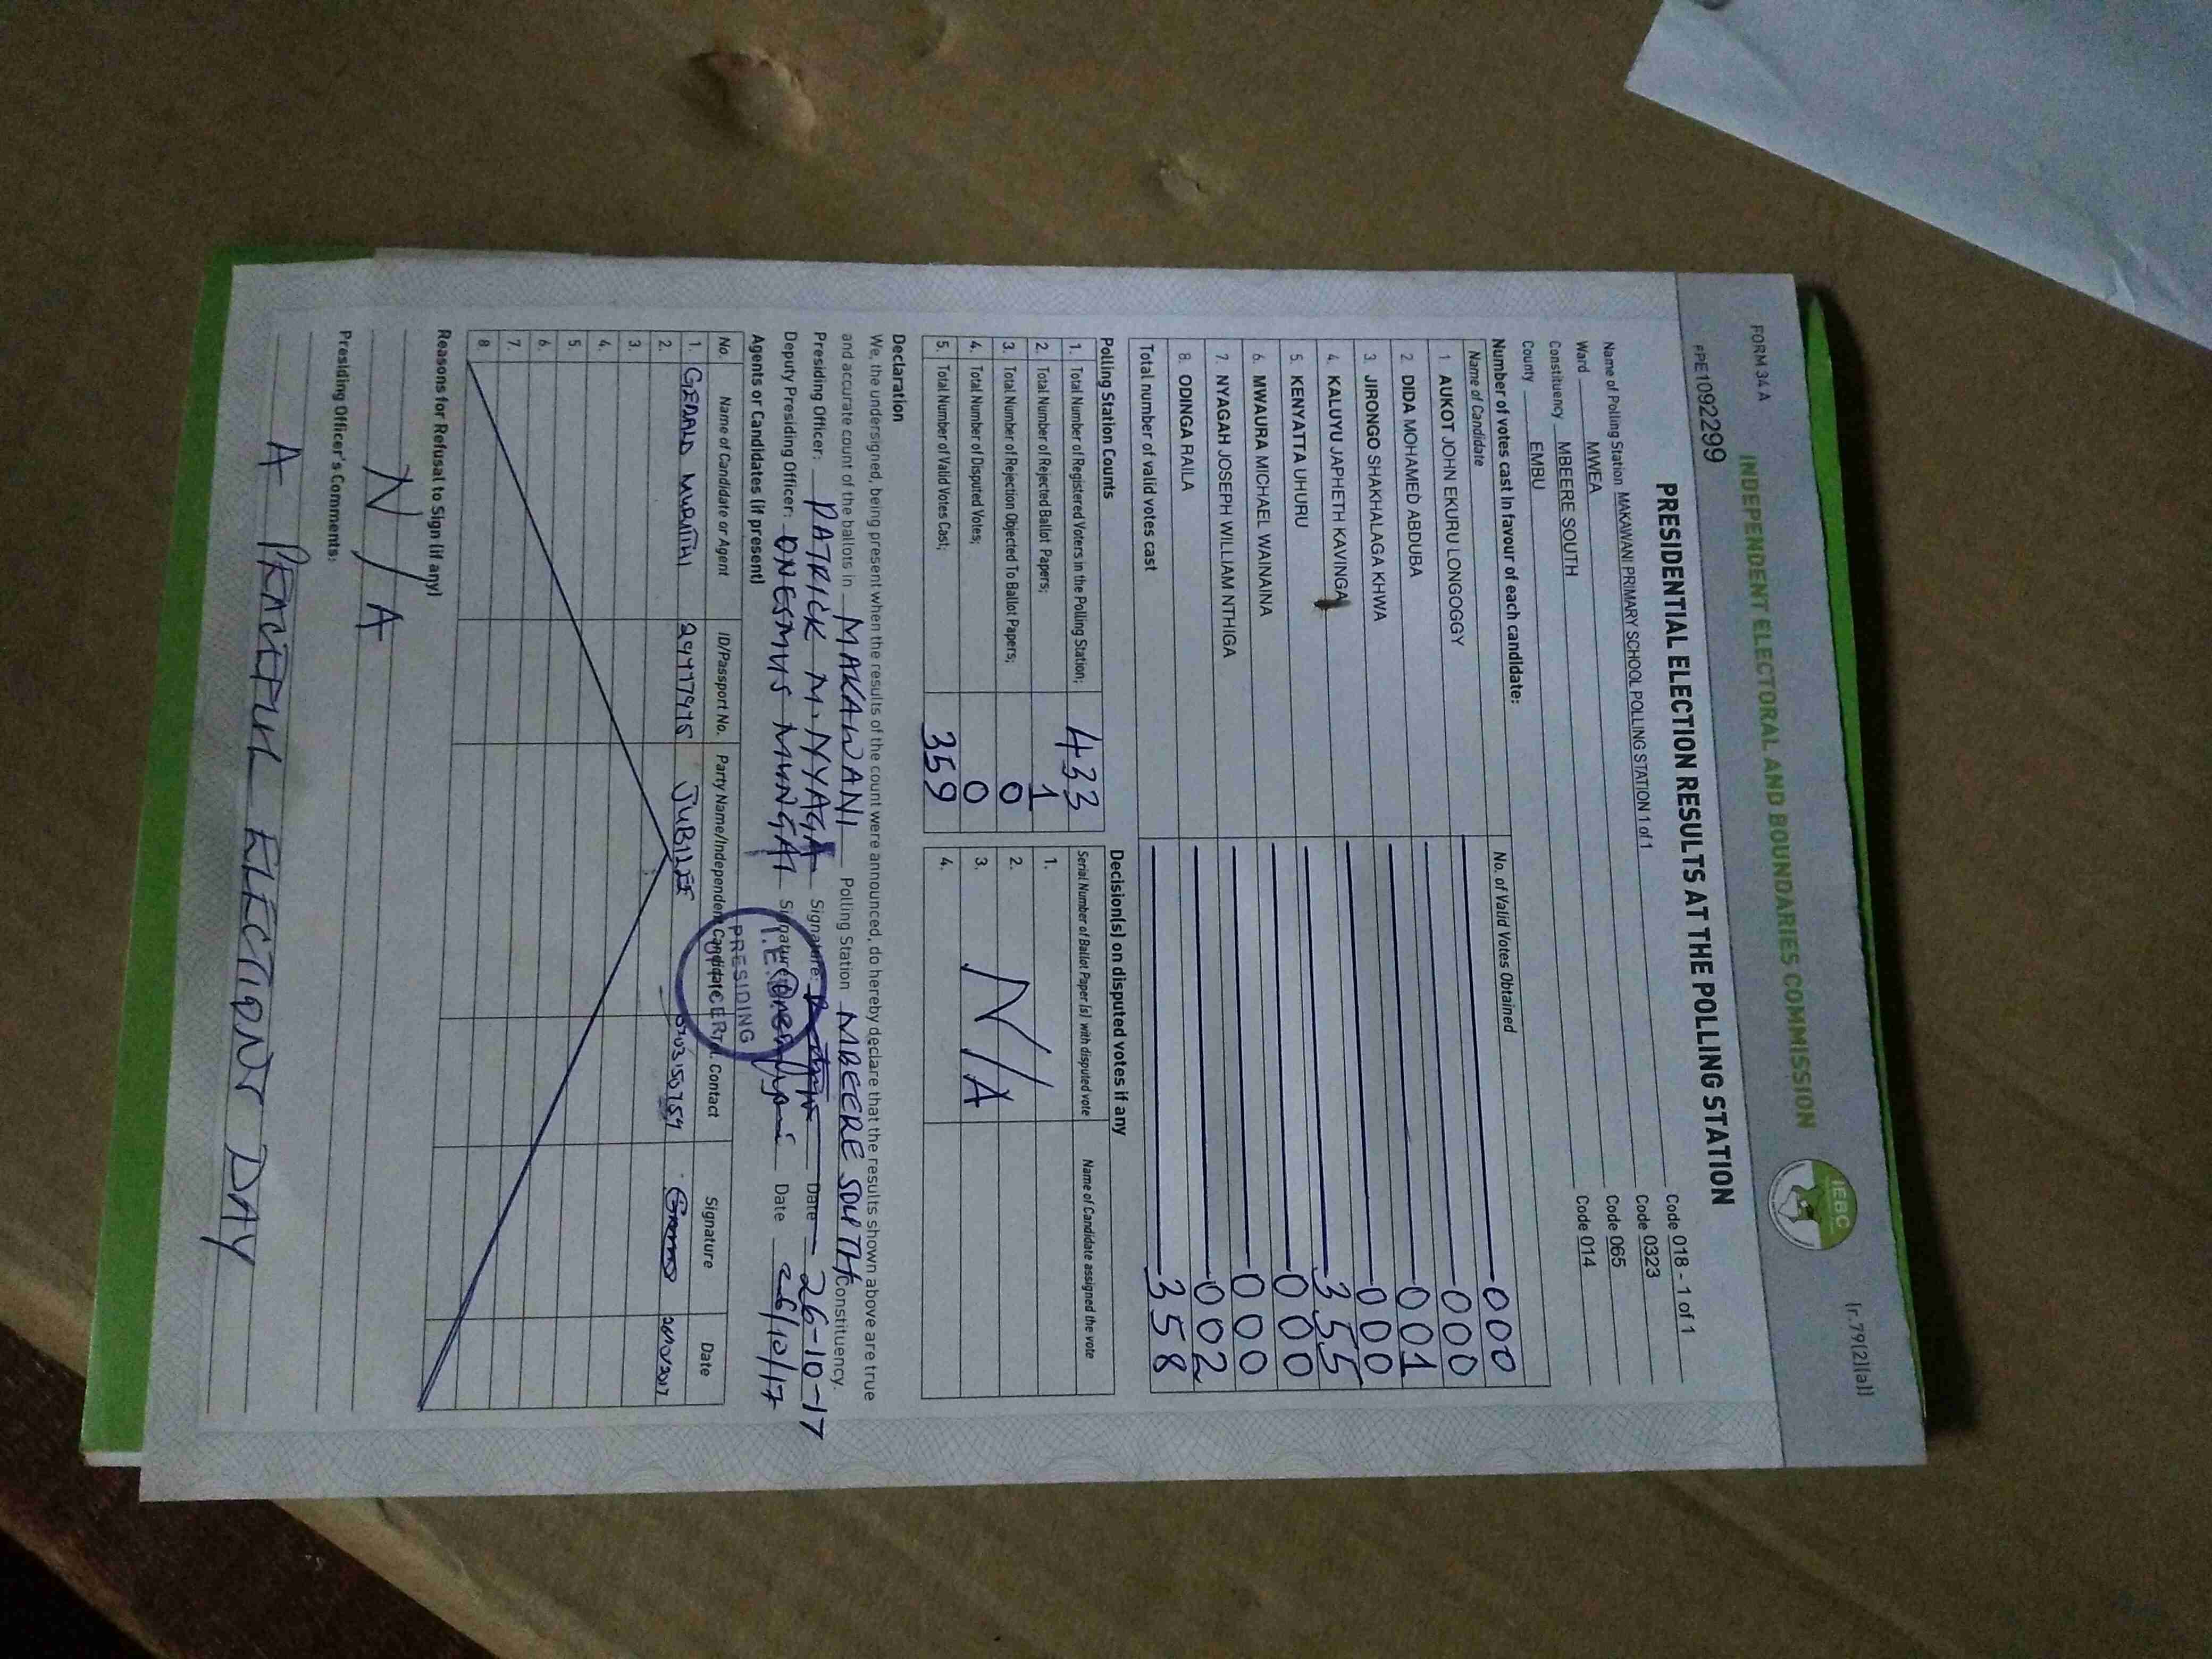 FORM 34 A
(r.79(2)(a))
INDEPENDENT ELECTORAL AND BOUNDARIES COMMISSION
IEBC
FPE1092299
PRESIDENTIAL ELECTION RESULTS AT THE POLLING STATION
Name of Polling Station MAKAWANI PRIMARY SCHOOL POLLING STATION 1 of 1 Code 018 - 1 of 1
Ward MWEA Code 0323
Constituency MBEERE SOUTH Code 065
County EMBU Code 014
Number of votes cast in favour of each candidate:
Name of Candidate No. of Valid Votes Obtained
1 AUKOT JOHN EKURU LONGOGGY 000
2. DIDA MOHAMED ABDUBA 000
3. JIRONGO SHAKHALAGA KHWA 001
4. KALUYU JAPHETH KAVINGA 000
5. KENYATTA UHURU 355
6. MWAURA MICHAEL WAINAINA 000
7. NYAGAH JOSEPH WILLIAM NTHIGA 000
8. ODINGA RAILA 002
Total number of valid votes cast 358
Polling Station Counts
1. Total Number of Registered Voters in the Polling Station; 433
2. Total Number of Rejected Ballot Papers; 1
3. Total Number of Rejection Objected To Ballot Papers; 0
4. Total Number of Disputed Votes; 0
5. Total Number of Valid Votes Cast; 359
Decision(s) on disputed votes if any
Serial Number of Ballot Paper (s) with disputed vote Name of Candidate assigned the vote
1.
2.
3.
4.
N/A
Declaration
We, the undersigned, being present when the results of the count were announced, do hereby declare that the results shown above are true
and accurate count of the ballots in MAKAWANI Polling Station MBEERE SOUTH Constituency.
Presiding Officer: PATRICK M. NYAGA Signature: Date 26-10-17
Deputy Presiding Officer: ONESMUS MUNGAI Signature: Date 26/10/17
PRESIDING
Agents or Candidates (if present)
No. Name of Candidate or Agent ID/Passport No. Party Name/Independent Candidate Tel. Contact Signature Date
1. MURIITHI JUBILEE 26/10/2017
2.
3.
4.
5.
6.
7.
8
Reasons for Refusal to Sign (if any)
N/A
Presiding Officer's Comments:
A PEACEFUL ELECTIONS DAY